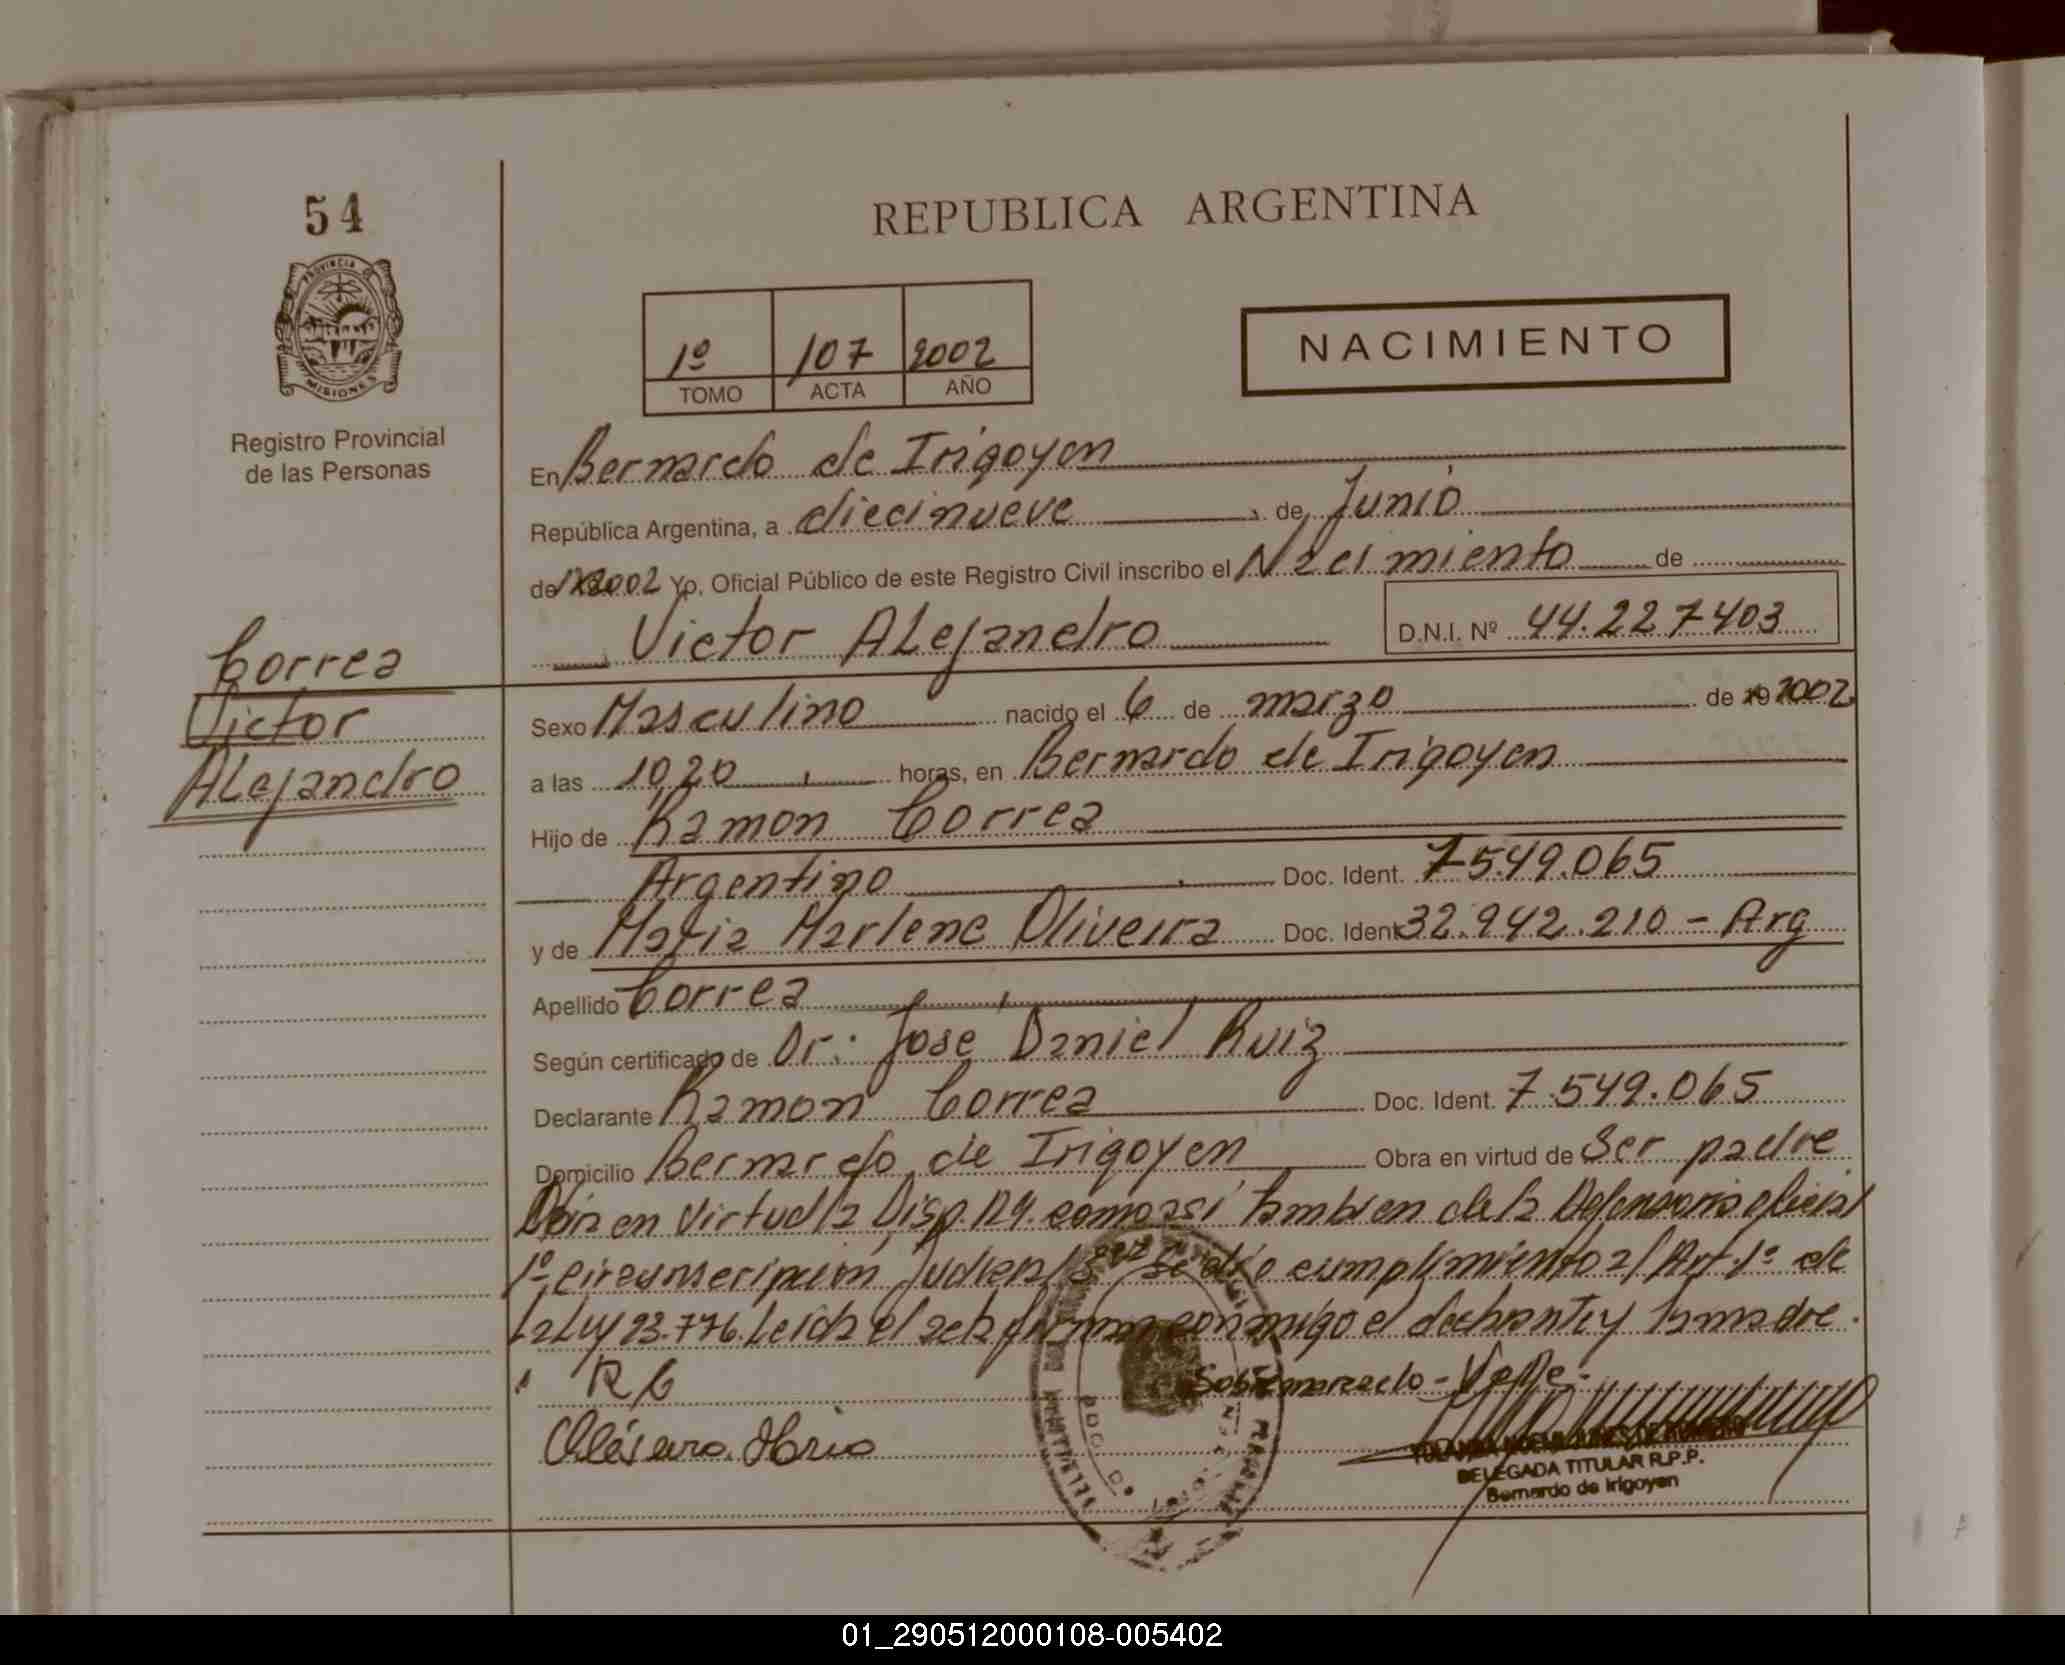 54
REPUBLICA ARGENTINA
PROVINCIA D
MISIONES
Registro Provincial
de las Personas
1º 107 2002
TOMO ACTA AÑO
NACIMIENTO
En Bernardo de Irigoyen
República Argentina, a diecinueve de Junio
de 2002 Yo, Oficial Público de este Registro Civil inscribo el Nacimiento de
Victor Alejandro D.N.I. Nº 44.227403
Correa
Victor
Alejandro
Sexo Masculino nacido el 6 de marzo de 19 2002
a las 10,20 horas, en Bernardo de Irigoyen
Hijo de Ramon Correa
Argentino Doc. Ident. 7.549.065
y de Maria Marlene Oliveira Doc. Ident 32.942.210 - Arg
Apellido Correa
Según certificado de Dr. José Daniel Ruiz
Declarante Ramon Correa Doc. Ident. 7.549.065
Domicilio Bernardo de Irigoyen Obra en virtud de Ser padre
en virtud la Disp. como asi tambien de la Defensoria oficial
1º circunscripcion Judicial se dio cumplimiento al Art. 1º de
la Ley 23.776. Leida el acta firman conmigo el declarante y la madre.
R C
Sobremarcado - Vale.
DELEGADA TITULAR R.P.P.
Bernardo de Irigoyen
01_290512000108-005402